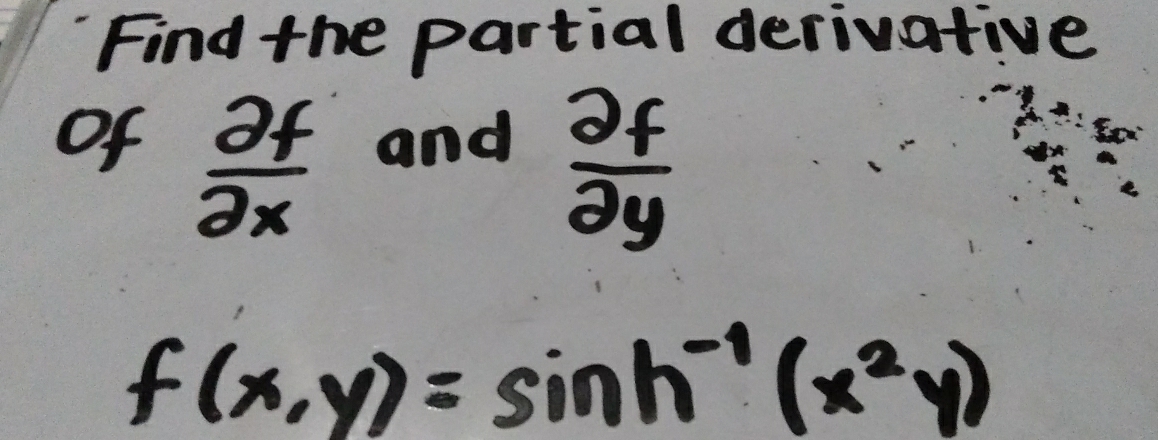 Find the partial derivative
Of ∂f/∂x and ∂f/∂y
f(x,y) = sinh⁻¹(x²y)